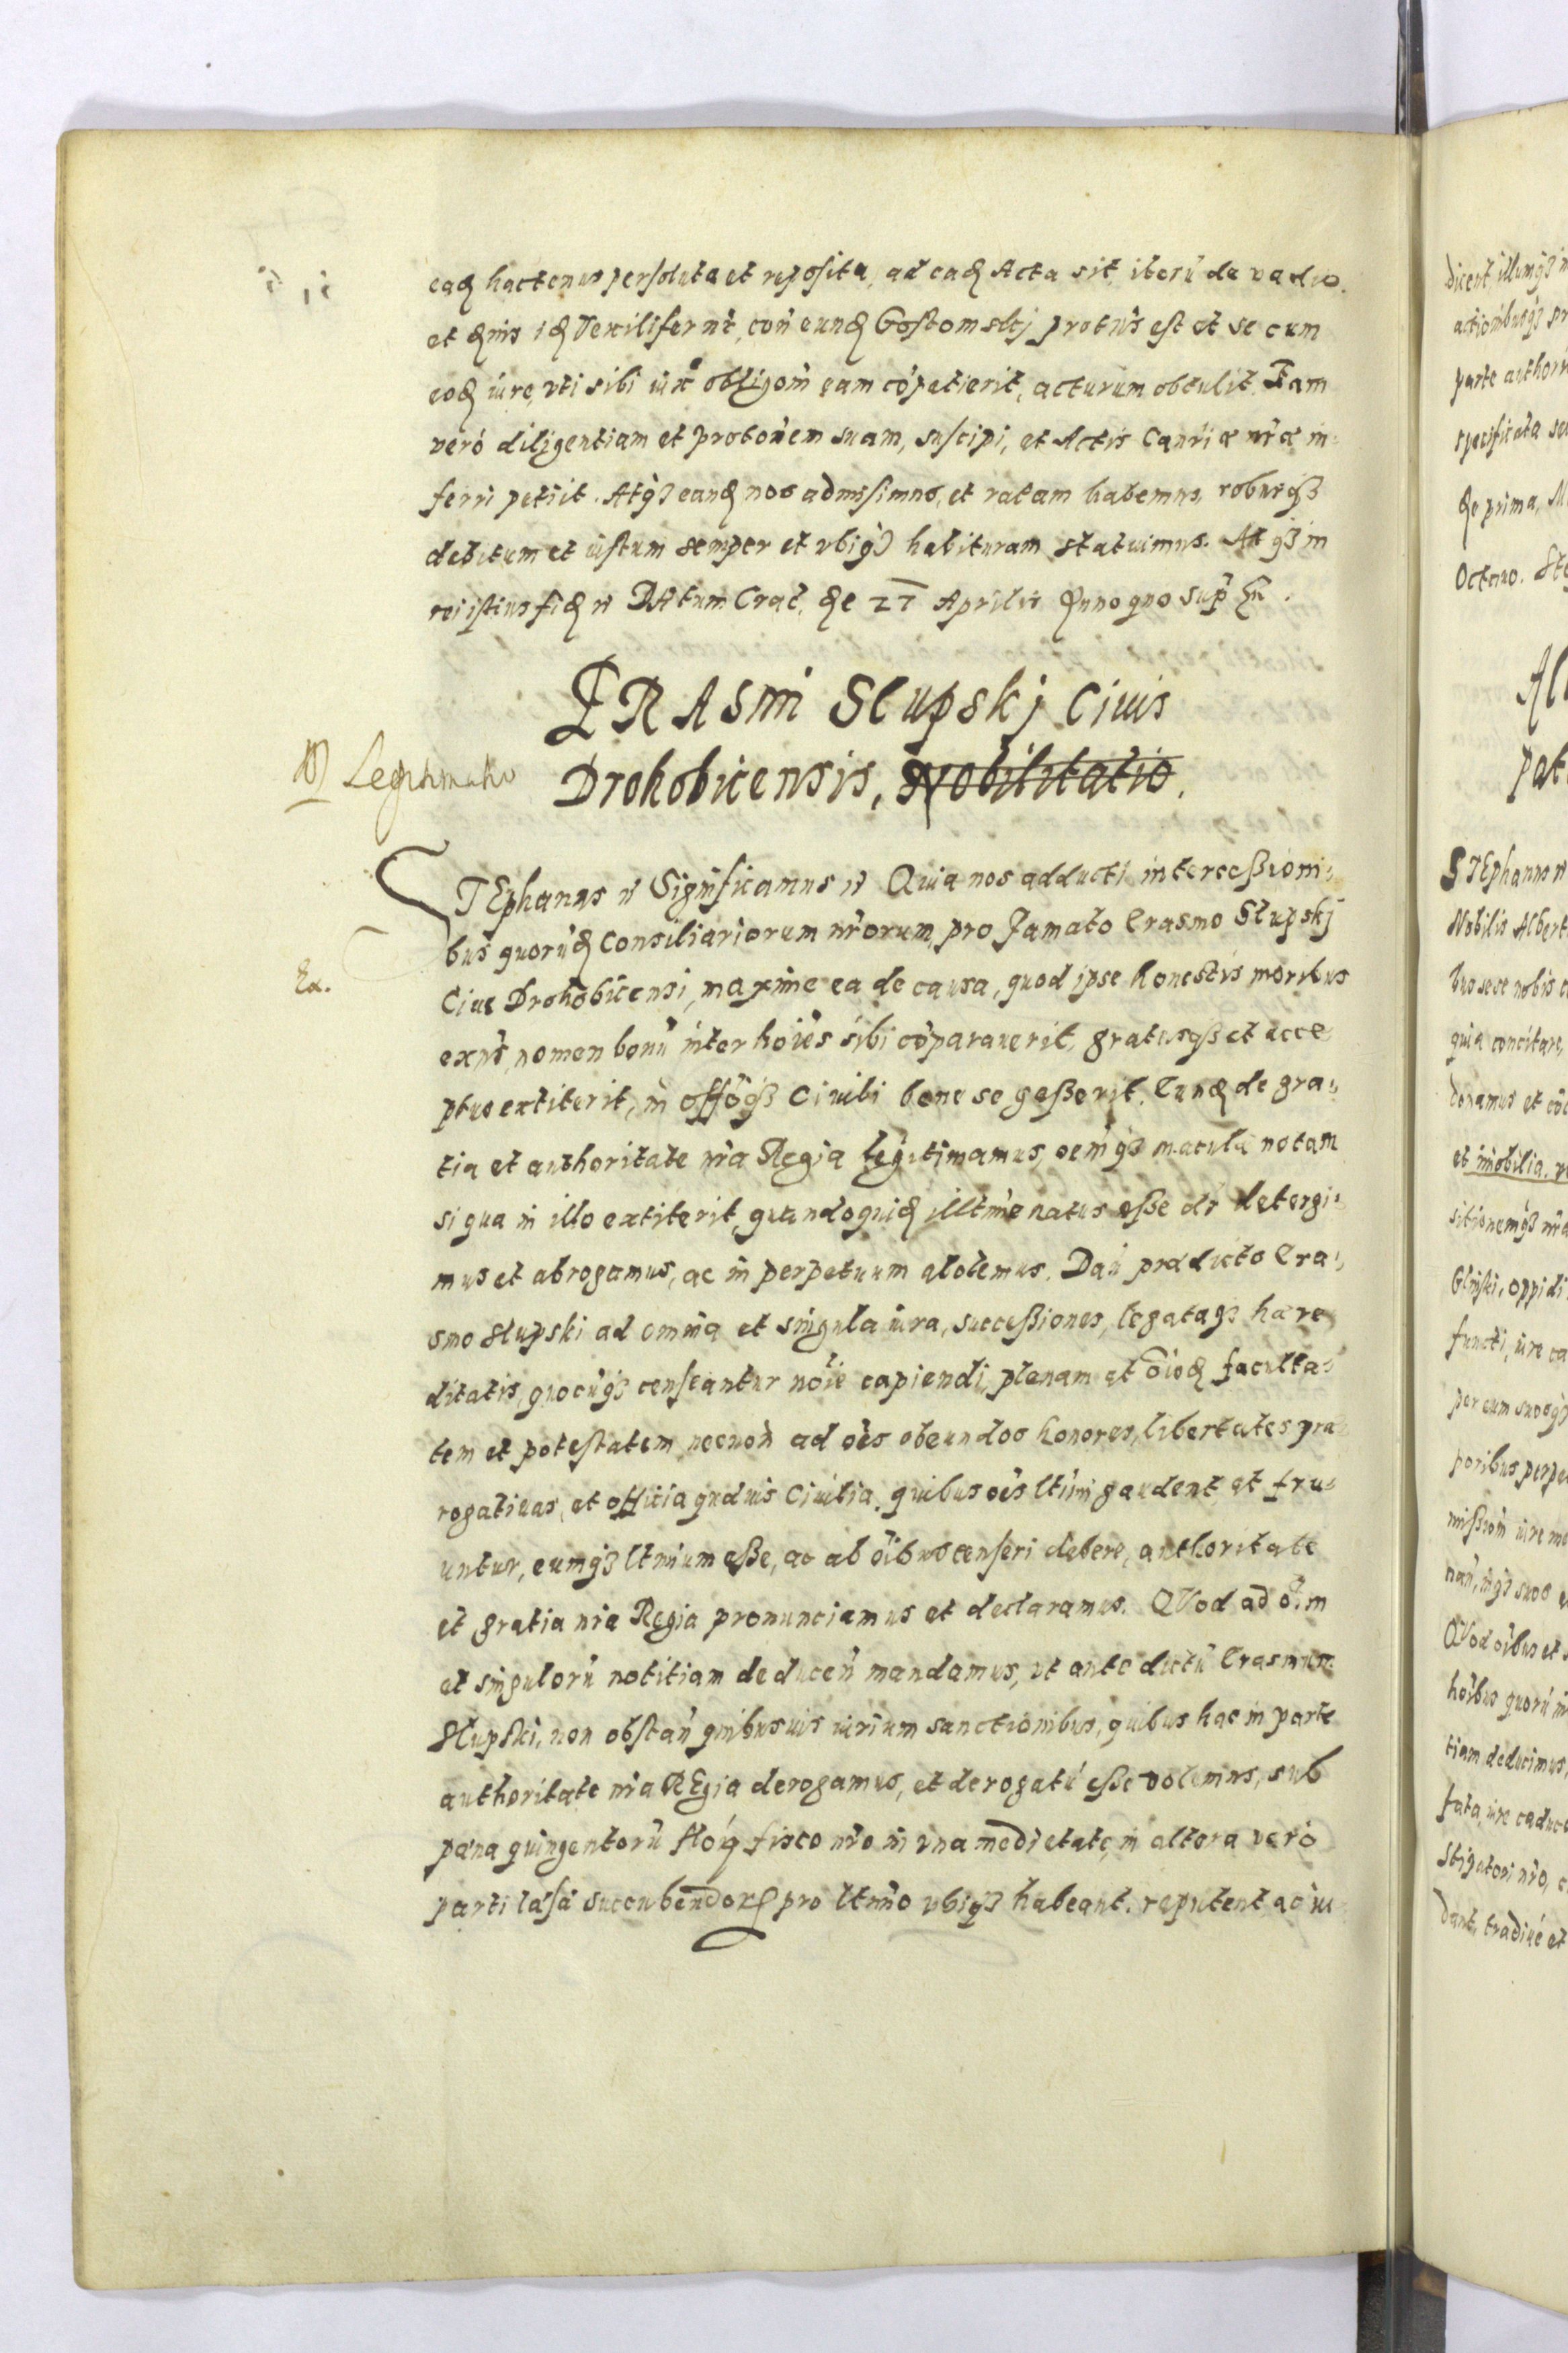 eaq hactenus persoluta et reposita, ad eaq Acta sit, iterũ de vadio.
et qnis iq Vexilifer nr̃, con eunq Gostomskj protũs est et se cum
eoq iure, vti sibi iux obligom̃ eam cõpetierit, acturum obtulit. Iam
verò diligentiam et protoñem suam, suscipi, et Actis Canrĩæ nr̃æ in-
ferri petiit. Atq3 eanq nos admisimus, et ratam habemus, roburq3
debitum et iustum semper et vbiq3 habituram statuimus. At q3 in
rei istius fiq n̄ DAtum Crac̃. qe 27 Aprilis Anno quo Sup̃
ERASmi Slupskj Ciuis
Drohobicensis, Nobilitatio.
Legitimatio
STEphanus n̄ Significamus n̄ Quia nos adducti intercessioni-
bus quorũq Consiliariorum nr̃orum, pro Famato Erasmo Slupskj
Ex.
Ciue Drohobicensi, maxime ea de causa, quod ipse honestis moribus
exñs, nomen bonũ inter hoĩes sibi cõparauerit, gratusq3 et acce-
ptus extiterit, in offõq3 Ciuili bene se gesserit. Eunq de gra-
tia et authoritate nr̃a Regia legitimamus, oem̃q3 maculã notam
si qua in illo extiterit, quandoquiq illtm̃e natus esse dr̃ detergi-
mus et abrogamus, ac in perpetuum abolemus. Dañ prædicto Era-
smo Slupski ad omnia et singula iura, successiones, legataq3 hære-
ditatis, quocũq3 censeantur noĩe capiendi, plenam et oĩoq faculta-
tem et potestatem necnoñ ad oẽs obeundos honores, libertates præ-
rogatiuas, et officia quæuis Ciuilia, quibus oẽs ltĩmi gaudent et fru-
untur, eumq3 ltm̃um esse, ac ab oĩbus censeri debere, authoritate
et gratia nr̃a Regia pronunciamus et declaramus. QVod ad oĩm
et singulorũ notitiam deduceñ mandamus, vt ante dictũ Erasmum
Slupski, non obstañ quibusuis iurium sanctionibus, quibus hac in parte
authoritate nr̃a REgia derogamus, et derogatũ esse volumus, sub
pæna quingentorũ floq fisco nr̃o in vna medietate, in altera verò
parti læsæ succubendorꝝ pro ltm̃o vbiq3 habeant. reputent, ac iu-